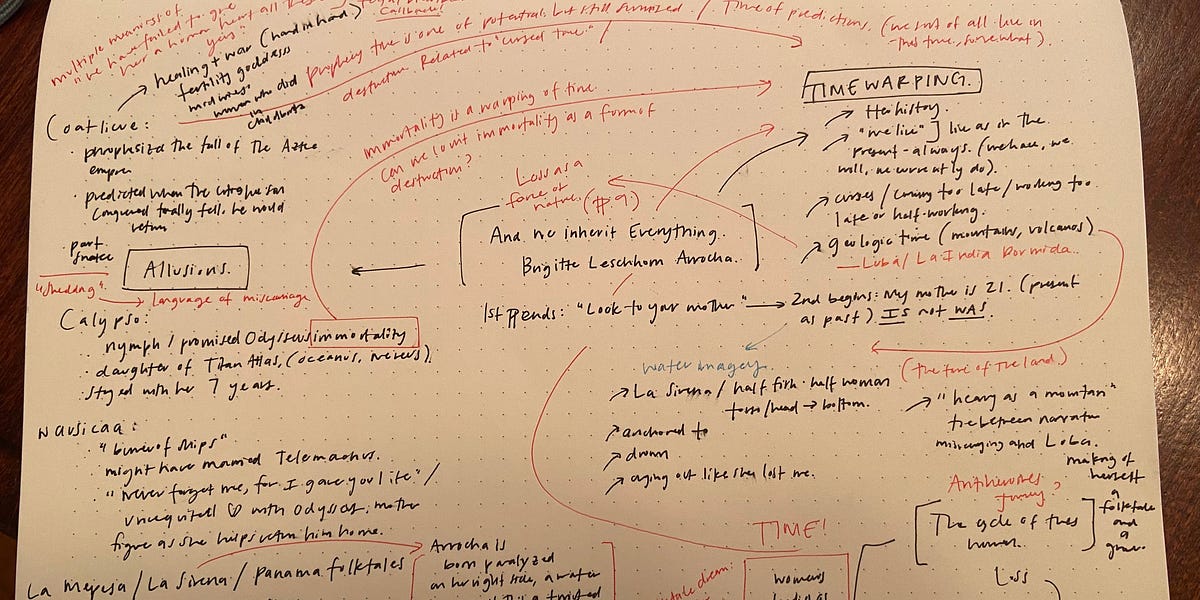 multiple meanings of
"we have failed to give
her a human heart all these
years"
Callback!
healing + war (hand in hand)
fertility goddess
midwives
women who did
in
childbirth
Prophecy time is one of potential, but still surmized / Time of predictions. (we sort of all live in
this time, somewhat).
destruction. Related to "cursed time."
Immortality is a warping of time.
Can we count immortality as a form of
destruction?
Coatlicue:
· prophesized the fall of The Aztec
empire
· predicted when the
conquered totally fell, he would
return
· part
snake
"shedding"
Language of miscarriage
Allusions.
Calypso:
· nymph / promised Odysseus immortality
· daughter of Titan Atlas, (oceanus, rivers)
· stayed with her 7 years.
Nausicaa:
· "burner of ships"
· might have married Telemachus.
· "never forget me, for I gave you life" /
unrequited ♡ with Odysseus, mother
figure as she helps return him home.
La Mejesa / La Sirena / Panama folktales
Arrocha is
born paralyzed
on her right side, a water
Loss as a
force of
nature. (#9)
And we inherit Everything.
Brigitte Leschhorn Arrocha.
1st ¶ ends: "Look to your mother"
2nd begins: My mother is 21. (present
as past) IS not WAS.
water imagery.
La Sirena / half fish · half woman
torso/head → bottom.
anchored to
drown
crying out like she lost me.
TIME!
womens
TIMEWARPING.
Her history.
"we live"] live as in the
present - always. (we have, we
will, we currently do).
curses / coming too late / working too
late or half-working.
geologic time (mountains, volcanos)
— Luba / La India Dormida.
(the time of the land.)
"heavy as a mountain"
tie between narrator
miscarrying and Loba.
making of
herself
a
folktale
and
a
Antiheroines
journey?
The cycle of
Loss